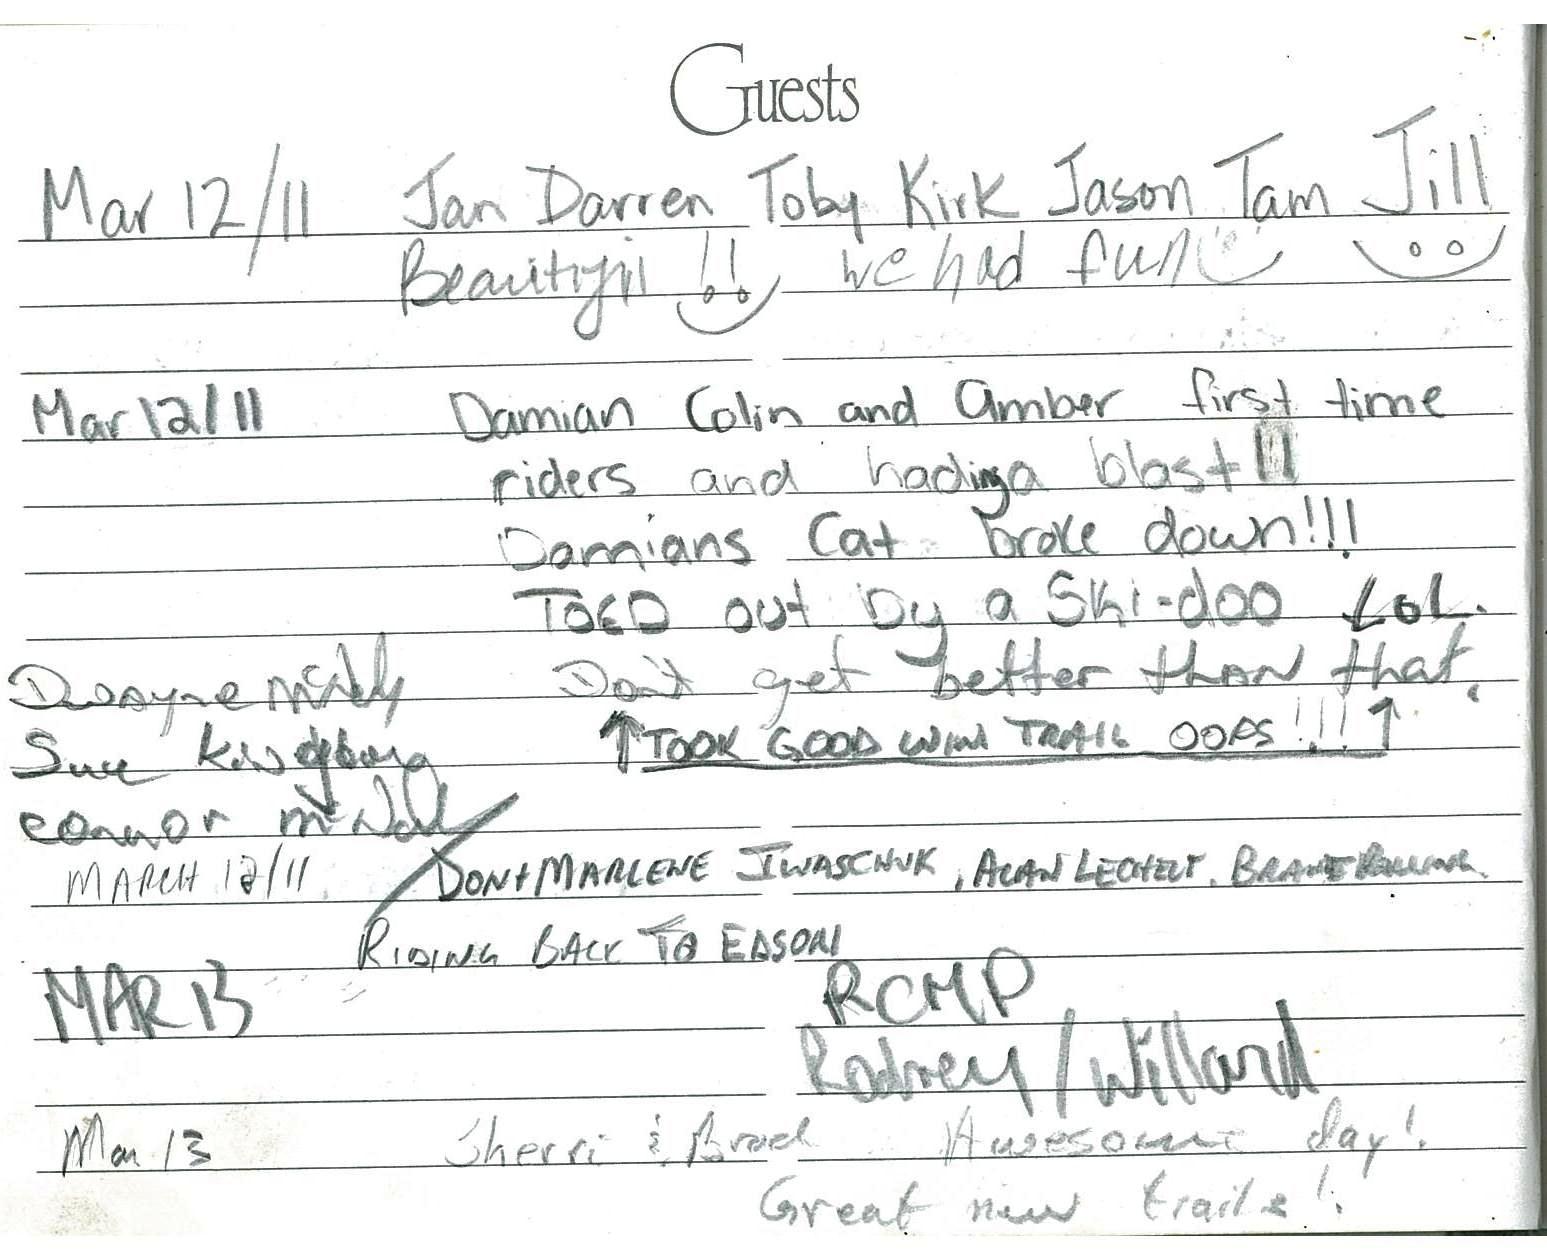 Guests
Mar 12/11 Jan Darren Toby Kirk Jason Tam Jill
Beautiful !! we had fun
Mar 12/11 Damian Colin and amber first time
riders and hading a blast!!
Damians Cat broke down!!!
TOED out by a Ski-doo LoL.
Dwayne Don't get better than that.
Sue ↑ TOOK GOOD WIN TRAIL OOPS!!! ↑
connor
MARCH 12/11 DON + MARLENE IWASCHUK, ALAN LECHELT,
RIDING BACK TO EDSON
MAR 13 RCMP
Rodney / Willard
Mar 13 Sherri & Brad Awesome day!
Great new trails!